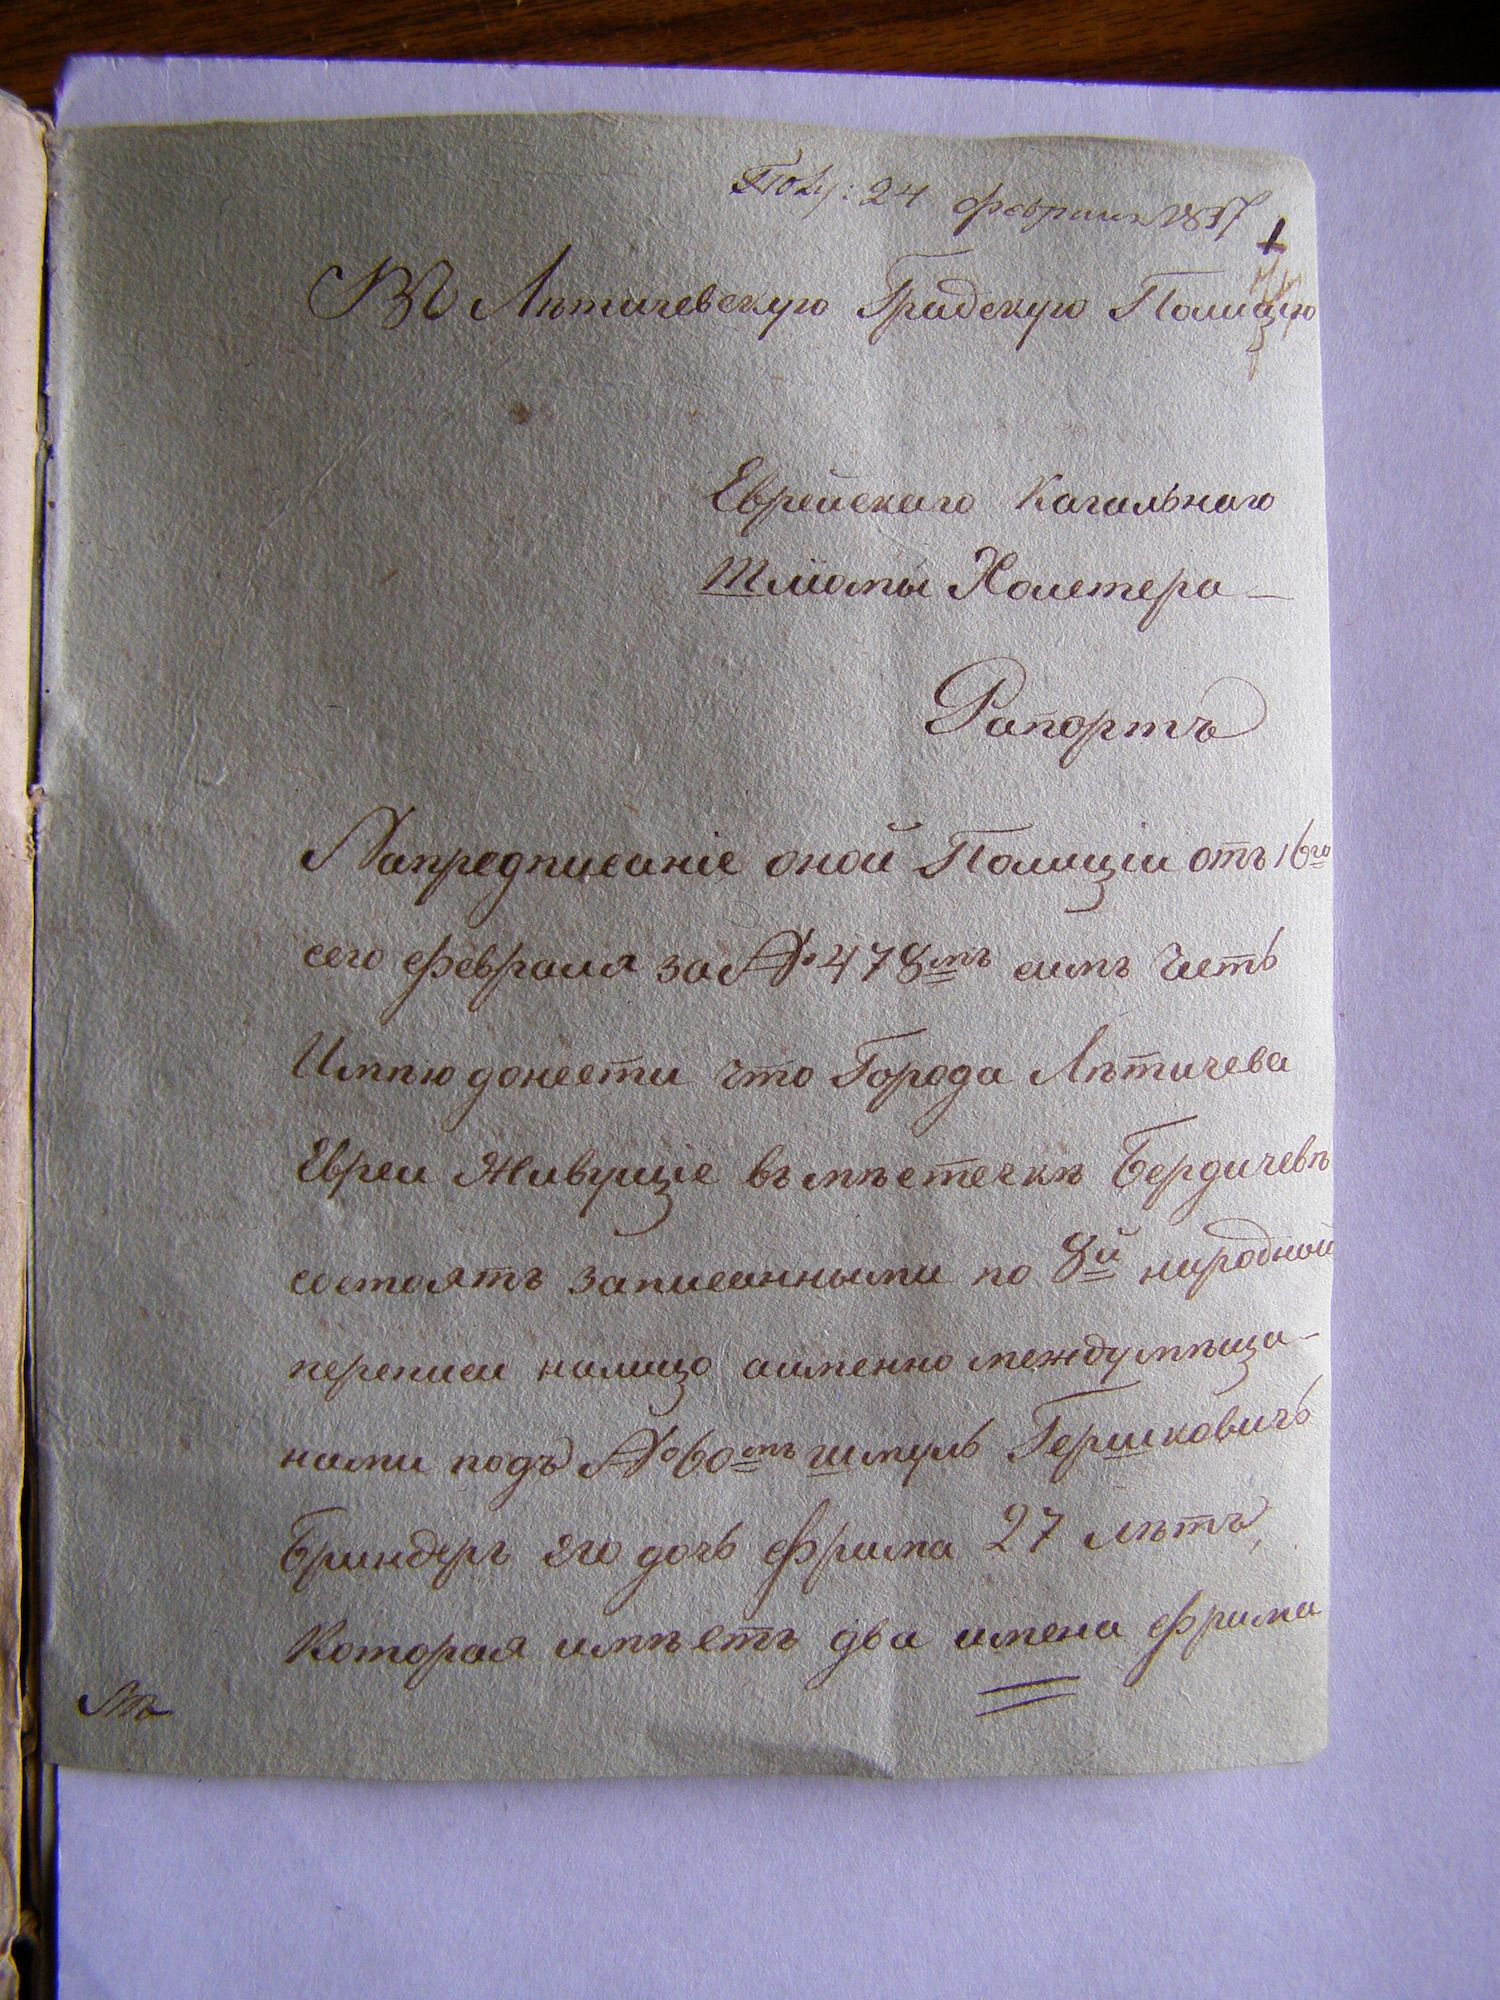 Полу: 24 февраля 1837
1
Въ Лѣтичевскую Градскую Полицію
Еврейскаго Кагальнаго
Шліомы Холетера -
Рапортъ
Напредписаніе оной Полиціи отъ 16го
сего февраля за № 478мъ симъ честь
Имѣю донести что Города Лѣтичева
Евреи Живущіе въ мѣстечкѣ Бердичевѣ
состоятъ записанными по 8й народной
переписи налицо аименно междумѣща-
нами подъ № 60мъ шмуль Гершковичъ
Бриндеръ его дочь фрима 27 лѣтъ,
Которая имѣетъ два имена фрима